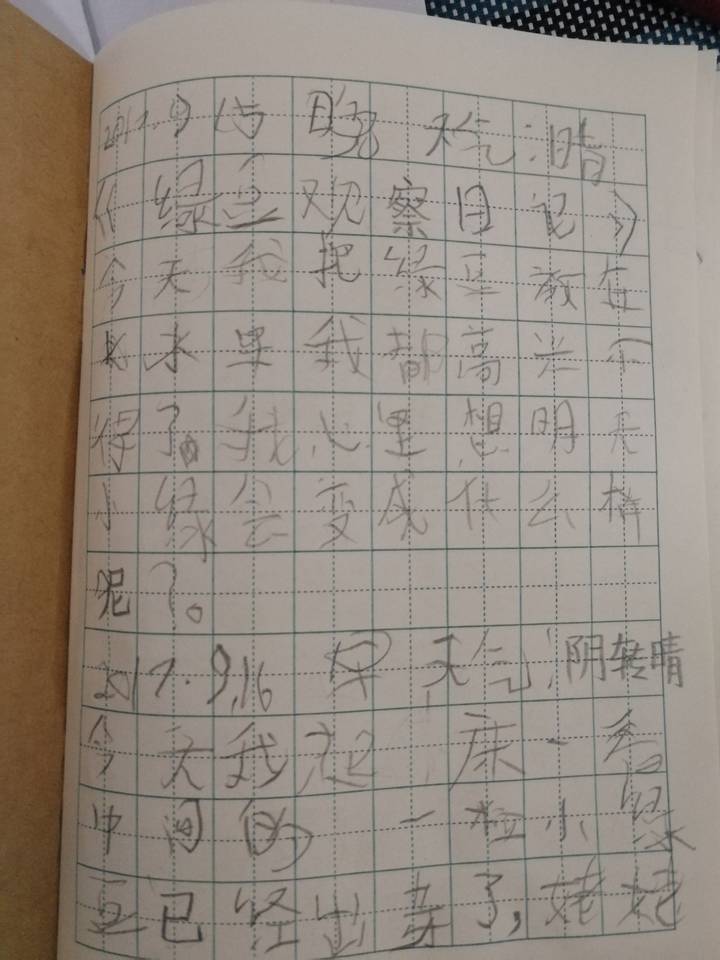 2017.9 15 日晚 天气:晴
《绿豆观察日记》
今天我把绿豆放在
水里我都高兴不
得了。我心里想明天
小绿会变成什么样
呢?。
2017.9.16 早 天气:阴转晴
今天我起床一看
中间的一粒小绿
豆已经出芽了,姥姥